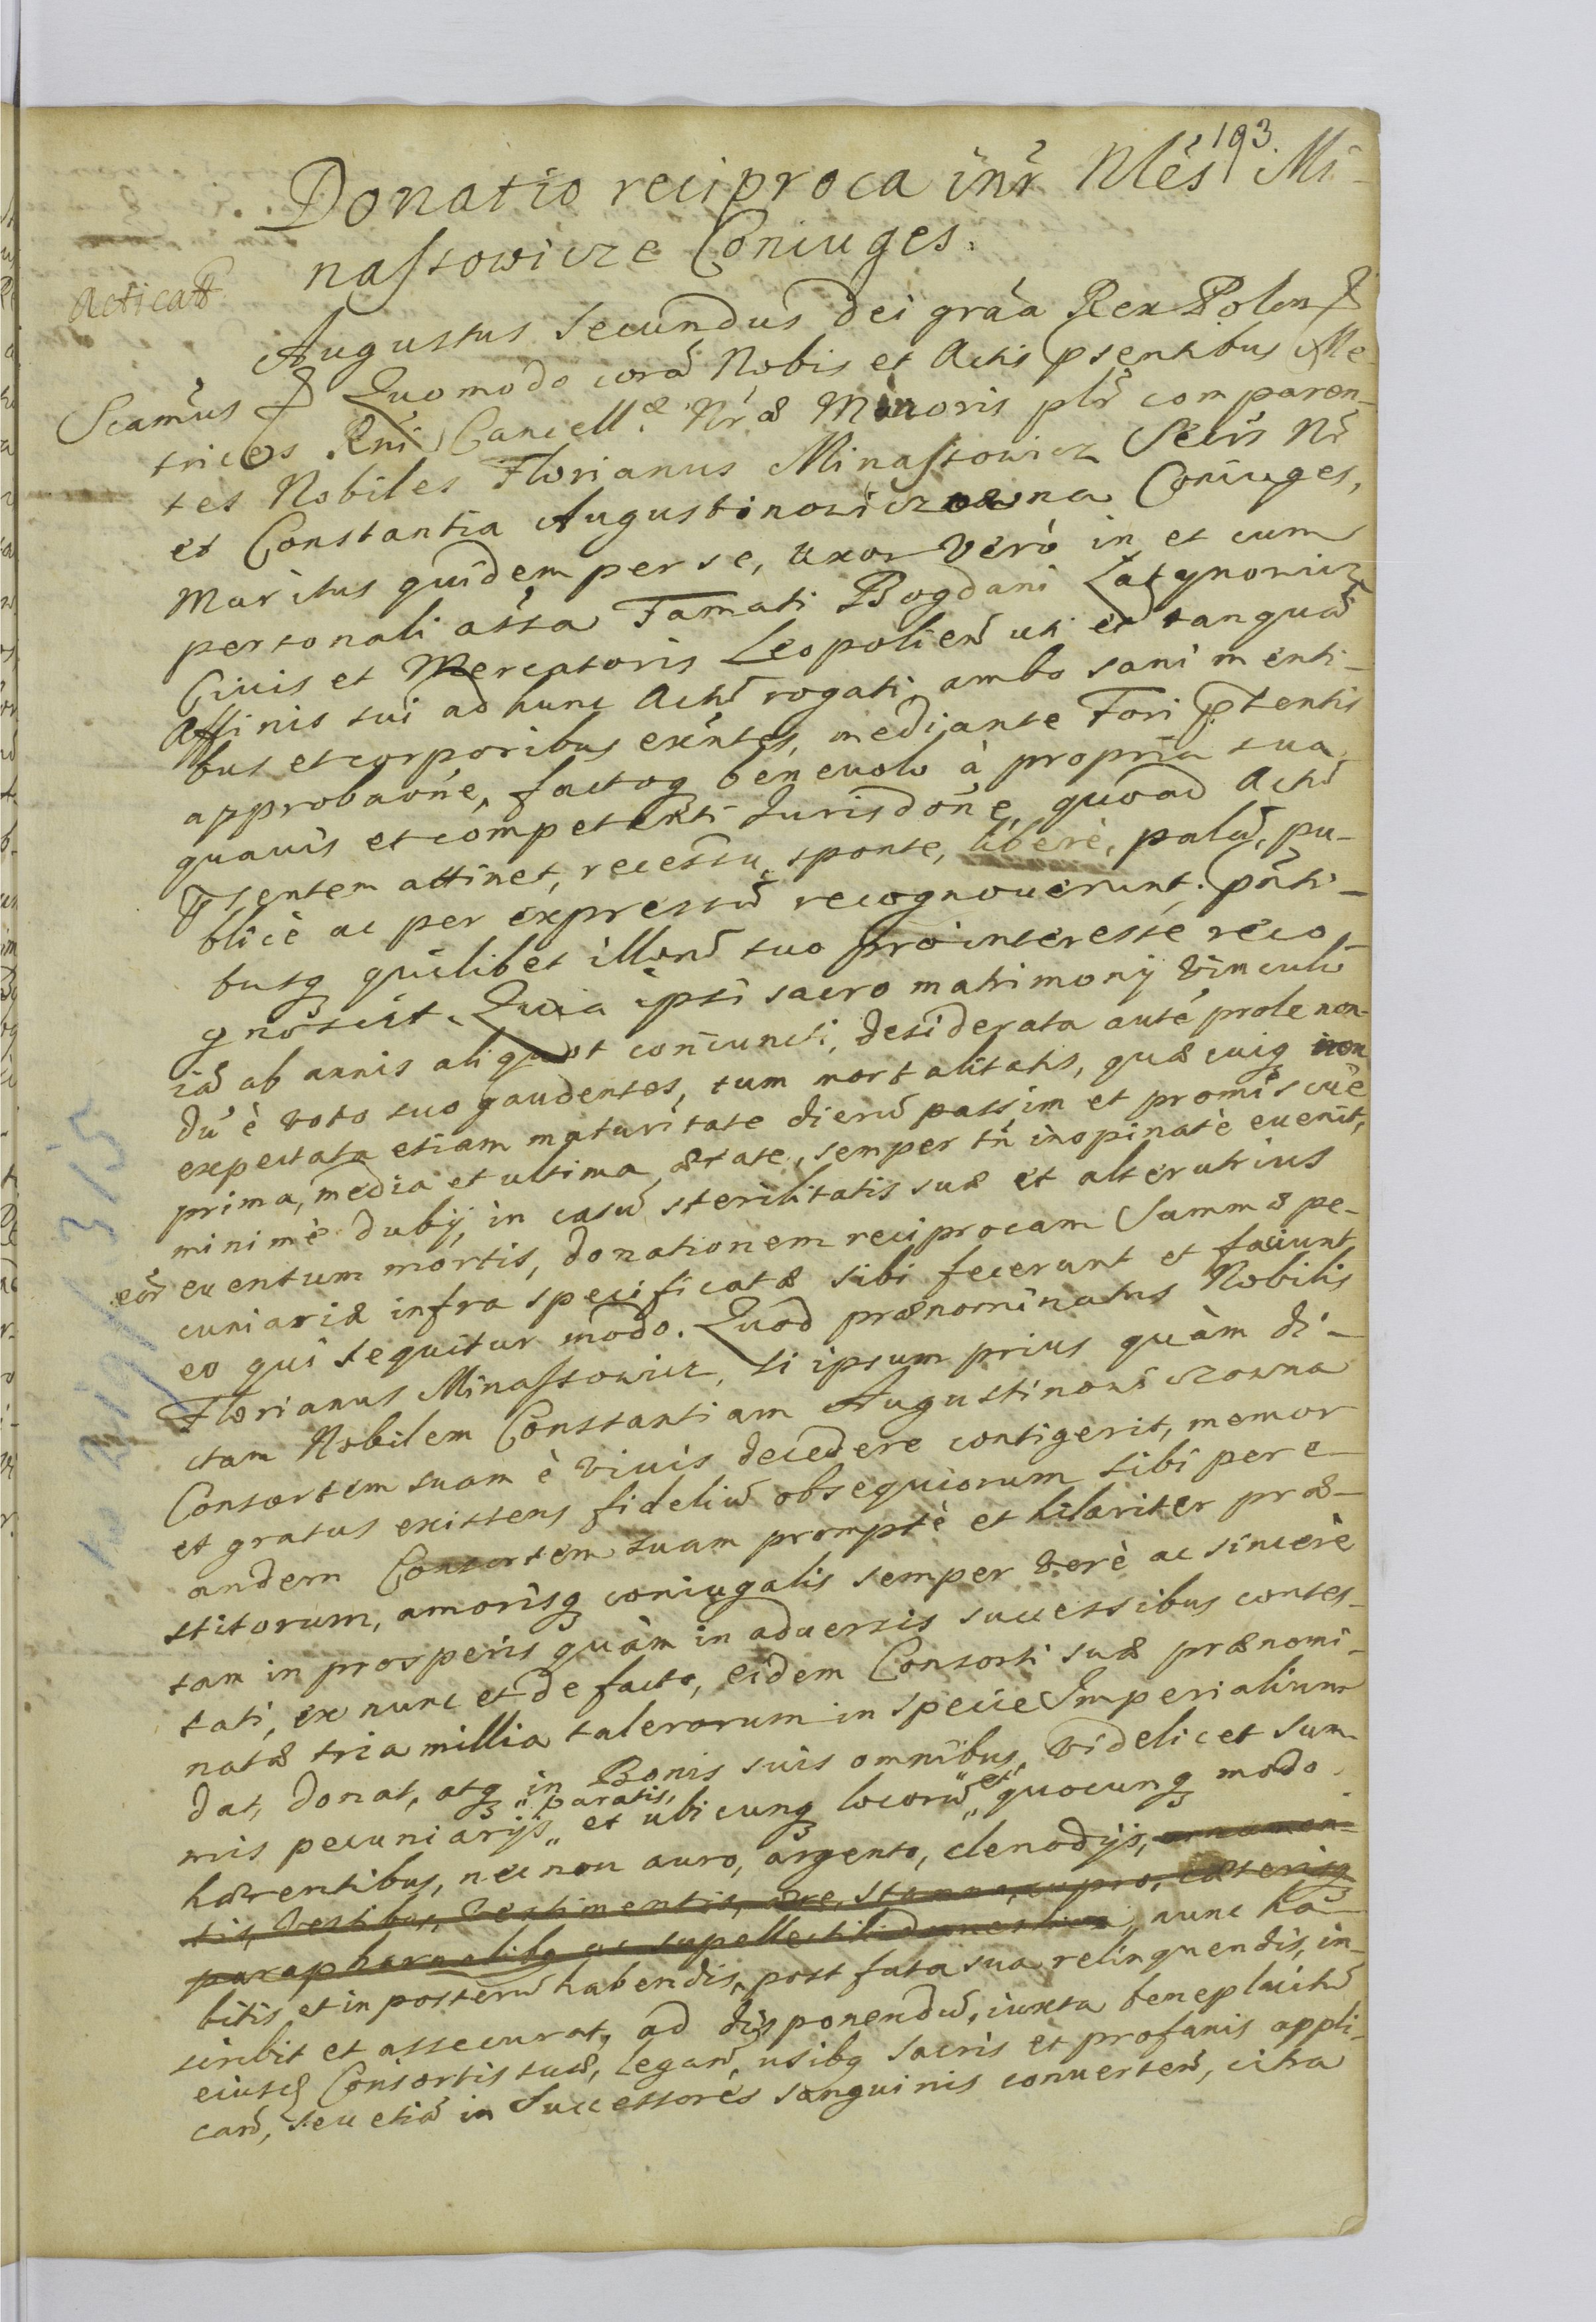 193.
Donatio reciproca inr̃ Nles Mi-
naſsowicze Coniuges.
Acticatt
Augustus Secundus Dei grãa Rex Polon
Scamus Quomodo corã Nobis et Actis psentibus Me-
trices Rñi Cancell.æ Nræ Minoris plr̃ comparen-
tes Nobiles Florianus Minaſsowicz Secrs Nr̃
et Constantia Augustinowiczowna Coniuges,
Maritus quidem per se, uxor verò in et cum
personali assa Famati Bogdani Latynowicz
Ciuis et Mercatoris Leopolien uti et tanquã
Affinis sui ad hunc Actũ rogati, ambo sani menti-
bus et corporibus exẽntes, mediante Fori ptentis
approbaõne, factoq benevolo à propria sua,
quavis et competenti Jurisdõne, quoad Actũ
psentem attinet, recessu, sponte, liberè, palã, pu-
blicè ac per expressũ recognoverunt, pñti-
busq quilibet illorũ suo pro interesse reco-
gnoscit. Quia ipsi sacro matrimonÿ vinculo
iã ab annis aliquot coniuncti, desiderata autẽ prole non-
dũ è voto suo gaudentes, tum mortalitatis, quæ cuiq non
expectata etiam maturitate dierũ passim et promiscuè
prima, media et ultima ætate, semper tñ inopinatè evenit,
minimè dubÿ, in casũ sterilitatis suæ et alterutrius
eor̃ eventum mortis, donationem reciprocam Summæ pe-
cuniariæ infra specificatæ sibi fecerunt et faciunt
eo qui sequitur modo. Quod prænominatus Nobilis
Florianus Minaſsowicz, si ipsum prius quàm di-
ctam Nobilem Constantiam Augustinowiczowna
Consortem suam è vivis decedere contigerit, memor
et gratus existens fideliũ obsequiorum sibi per e-
andem Consortem suam promptè et hilariter præ-
stitorum, amorisq coniugalis semper verè ac sincerè
tam in prosperis quàm in adversis successibus contes-
tati, ex nunc et de facto, eidem Consorti suæ prænomi-
natæ tria millia talerorum in specie Imperialium
dat, donat, atq in Bonis suis omnibus, videlicet sum-
mis pecuniarÿs „paratis,„ et ubicunq locorũ „et„ quocunq modo
hærentibus, nec non auro, argento, clenodÿs, ornamen-
tis, vestibus, vestimentis, ære, stanno, cupro, cæterisq
paraphernalibq ac supellectili domestica, nunc ha-
bitis et in posterũ habendis, post fata sua relinquendis, in-
scribit et assecurat, ad disponendũ, iuxta beneplacitũ
eiusd Consortis suæ, legan, usibq sacris et profanis appli-
can, seu etiã in Successores sanguinis converten, citra